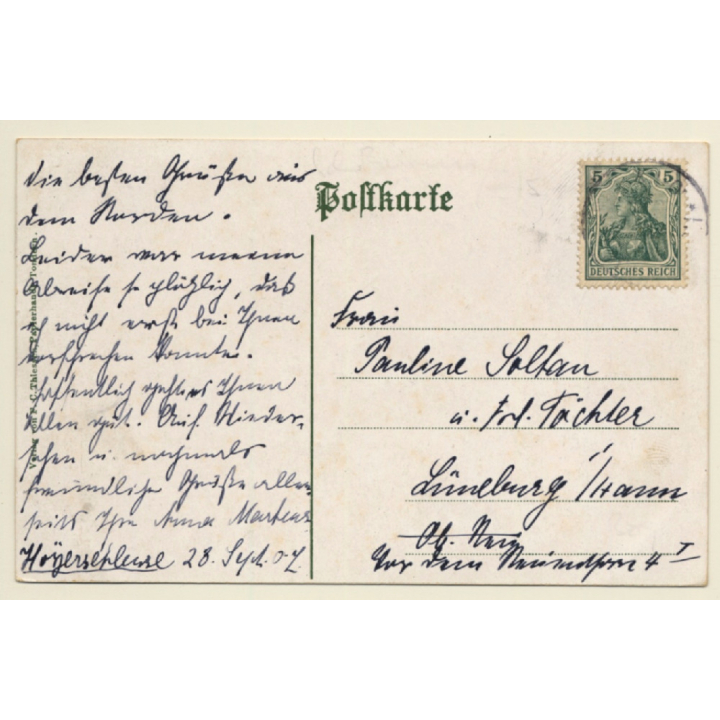 Die besten Grüße aus
dem Norden.
Leider war meine
Abreise so plötzlich, daß
ich nicht erst bei Ihnen
vorsprechen konnte.
Hoffentlich geht es Ihnen
allen gut. Auf Wieder-
sehen u. nochmals
freundliche Grüße aller-
seits Ihre Anna Martens
Hoyerschleuse 28. Sept. 07.
Verlag von
Postkarte
5 5
DEUTSCHES REICH
Frau
Pauline Soltau
u. Frl. Töchter
Lüneburg i/Hann
Vor dem Neuenthore 4 I